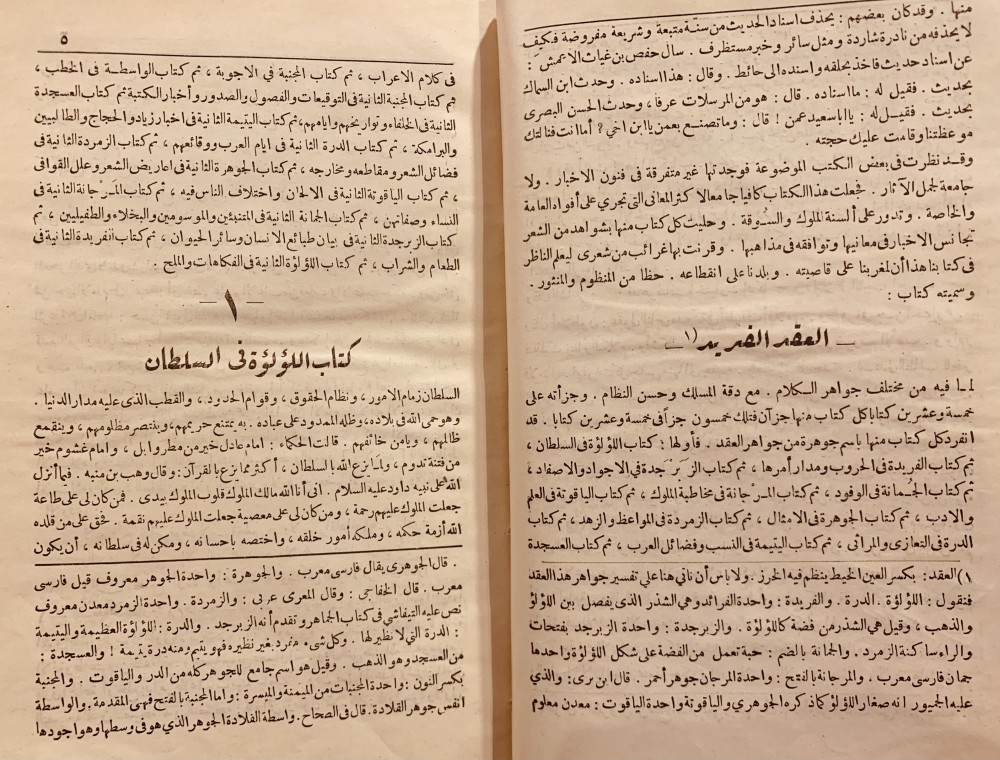 منها . وقد كان بعضهم : يحذف اسناد الحديث من سنة متبعة وشريعة مفروضة فكيف
لا يحذفه من نادرة شاردة ومثل سائر وخبر مستظرف . سال حفص بن غياث الاعمش :
عن اسناد حديث فاخذ بحلقه واسنده الى حائط . وقال : هذا اسناده . وحدث ابن السماك
بحديث . فقيل له : ما اسناده . قال : هو من المرسلات عرفا ، وحدث الحسن البصرى
بحديث . فقيل له : يا ابا سعيد عمن ! قال : وما تصنع بعمن يا ابن اخي ? أما انت فنالتك
موعظتنا وقامت عليك حجته .
وقد نظرت فى بعض الكتب الموضوعة فوجدتها غير متفرقة فى فنون الاخبار . ولا
جامعة لجمل الآثار . فجعلت هذا الكتاب كافيا جامعا لا كثر المعانى التى تجري على أفواه العامة
والخاصة . وتدور على ألسنة الملوك والسوقة . وحليت كل كتاب منها بشواهد من الشعر
تجانس الاخبار فى معانيها وتوافقه فى مذاهبها . وقرنت بها غرائب من شعرى ليعلم الناظر
فى كتابنا هذا أن لمغربنا على قاصيته . وبلدنا على انقطاعه . حظا من المنظوم والمنثور .
وسميته كتاب :
— العقد الفريد (١ —
لما فيه من مختلف جواهر الكلام . مع دقة المسلك وحسن النظام . وجزأته على
خمسة وعشرين كتابا كل كتاب منها جزآن فتلك خمسون جزأ فى خمسة وعشرين كتابا . قد
انفرد كل كتاب منها باسم جوهرة من جواهر العقد . فأولها : كتاب اللؤلؤة فى السلطان ،
ثم كتاب الفريدة فى الحروب ومدار أمرها ، ثم كتاب الزبرجدة فى الاجواد والاصفاد ،
ثم كتاب الجُمانة فى الوفود ، ثم كتاب المرجانة فى مخاطبة الملوك ، ثم كتاب الياقوتة فى العلم
والادب ، ثم كتاب الجوهرة فى الامثال ، ثم كتاب الزمردة فى المواعظ والزهد ، ثم كتاب
الدرة فى التعازى والمراثى ، ثم كتاب اليتيمة فى النسب وفضائل العرب ، ثم كتاب العسجدة
١) العقد : بكسر العين الخيط ينظم فيه الخرز . ولا باس أن ناتي هنا علي تفسير جواهر هذا العقد
فنقول : اللؤلؤة . الدرة . والفريدة : واحدة الفرائد وهي الشذر الذى يفصل بين اللؤلؤ
والذهب ، وقيل هي الشذر من فضة كاللؤلؤة . والزبرجدة : واحدة الزبرجد بفتحات
والراء ساكنة الزمرد . والجمانة بالضم : حبة تعمل من الفضة على شكل اللؤلؤة واحدها
جمان فارسى معرب ، والمرجانة بالفتح : واحدة المرجان جوهر أحمر . قال ابن برى : والذي
عليه الجمهور انه صغار اللؤلؤ كما ذكره الجوهري والياقوتة واحدة الياقوت : معدن معلوم
٥
فى كلام الاعراب ، ثم كتاب المجنبة في الاجوبة ، ثم كتاب الواسطة فى الخطب ،
ثم كتاب المجنبة الثانية فى التوقيعات والفصول والصدور وأخبار الكتبة ثم كتاب العسجدة
الثانية فى الخلفاء وتواريخهم وايامهم ، ثم كتاب اليتيمة الثانية فى اخبار زياد والحجاج والطالبيين
والبرامكة ، ثم كتاب الدرة الثانية فى ايام العرب ووقائعهم ، ثم كتاب الزمردة الثانية فى
فضائل الشعر ومقاطعه ومخارجه ، ثم كتاب الجوهرة الثانية فى اعاريض الشعر وعلل القوافى
، ثم كتاب الياقوتة الثانية فى الالحان واختلاف الناس فيه ، ثم كتاب المرجانة الثانية فى
النساء وصفاتهن ، ثم كتاب الجمانة الثانية فى المتنبئين والموسومين والبخلاء والطفيليين ، ثم
كتاب الزبرجدة الثانية فى بيان طبائع الانسان وسائر الحيوان ، ثم كتاب الفريدة الثانية فى
الطعام والشراب ، ثم كتاب اللؤلؤة الثانية فى الفكاهات والملح .
— ١ —
كتاب اللؤلؤة فى السلطان
السلطان زمام الامور ، ونظام الحقوق ، وقوام الحدود ، والقطب الذى عليه مدار الدنيا .
وهو حمى الله فى بلاده ، وظله الممدود على عباده . به يمتنع حريمهم ، وينتصر مظلومهم ، وينقمع
ظالمهم ، ويامن خائفهم . قالت الحكماء : امام عادل خير من مطر وابل ، وامام غشوم خير
من فتنة تدوم ، ولما نزع الله بالسلطان ، أكثر مما يزع بالقرآن : وقال وهب بن منبه . فيما أنزل
الله على نبيه داود عليه السلام . انى أنا الله مالك الملوك قلوب الملوك بيدى . فمن كان لى على طاعة
جعلت الملوك عليهم رحمة ، ومن كان لى على معصية جعلت الملوك عليهم نقمة . فحق على من قلده
الله أزمة حكمه ، وملكه أمور خلقه ، واختصه باحسانه ، ومكن له فى سلطانه ، أن يكون
. قال الجوهرى يقال فارسى معرب . والجوهرة : واحدة الجوهر معروف قيل فارسى
معرب . قال الخفاجى : وقال المعرى عربى : والزمردة . واحدة الزمرد معدن معروف
نص عليه التيفاشي فى كتاب الجماهر وتقدم أنه الزبرجد . والدرة : اللؤلؤة العظيمة واليتيمة
: الدرة التي لا نظير لها . وكل شىء منفرد بغير نظير فهو يتيم ومنه درة يتيمة ! والعسجدة :
من العسجد وهو الذهب . وقيل هو اسم جامع للجوهر كله من الدر والياقوت . والمجنبة
بكسر النون : واحدة المجنبات من الميمنة والميسرة : واما المجنبة بالفتح فهى المقدمة . والواسطة
انفس جوهر القلادة . قال فى الصحاح . واسطة القلادة الجوهر الذي هو فى وسطها وهو اجودها